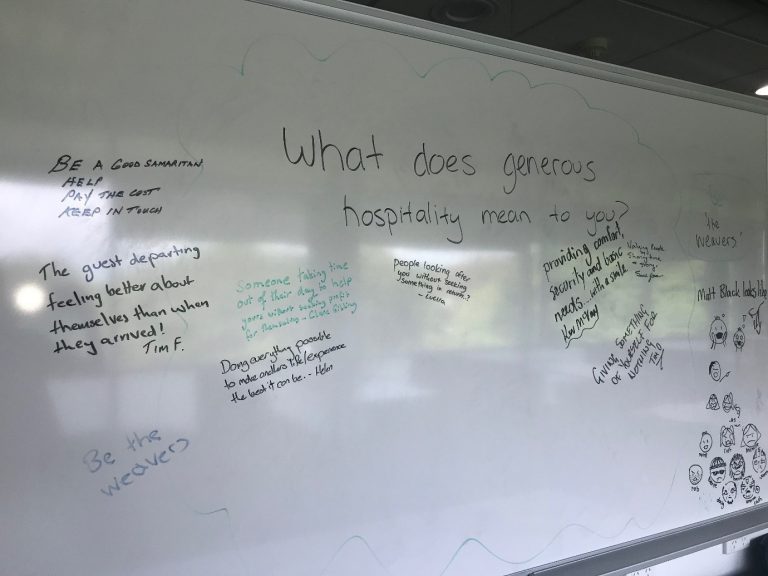 What does generous
hospitality mean to you?
BE A GOOD SAMARITAN
HELP
PAY THE COST
KEEP IN TOUCH
The guest departing
feeling better about
themselves than when
they arrived!
Tim F.
Someone taking time
out of their day to help
yours without seeking profit
for themselves -
Doing everything possible
to make another's life/experience
the best it can be. - Helen
people looking after
you without seeking
something in return.?
providing comfort
security and basic
needs... with a smile
GIVING SOMETHING
OF YOURSELF FOR
NOTHING
Be the
weavers
'the
weavers'
Matt Black looks like